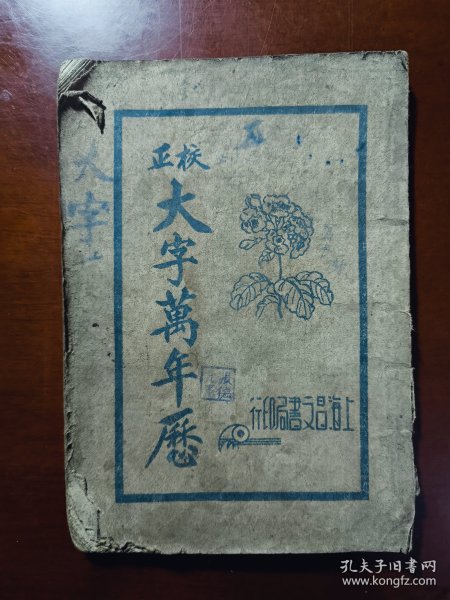 校正
大字萬年曆
上海昌文書局印行
大字
孔夫子旧书网
www.kongfz.com